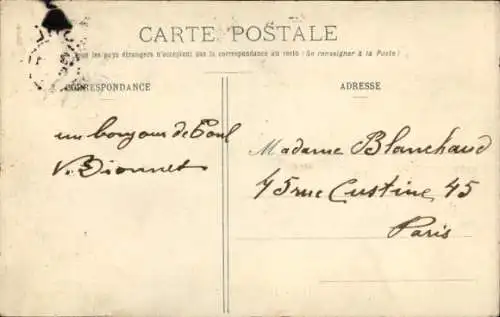 CARTE POSTALE
les pays étrangers n'acceptent pas la correspondance au recto (Se renseigner à la Poste)
CORRESPONDANCE
ADRESSE
un bonjour de Toul
V. Dionnet
Madame Blanchaud
45 rue Custine 45
Paris